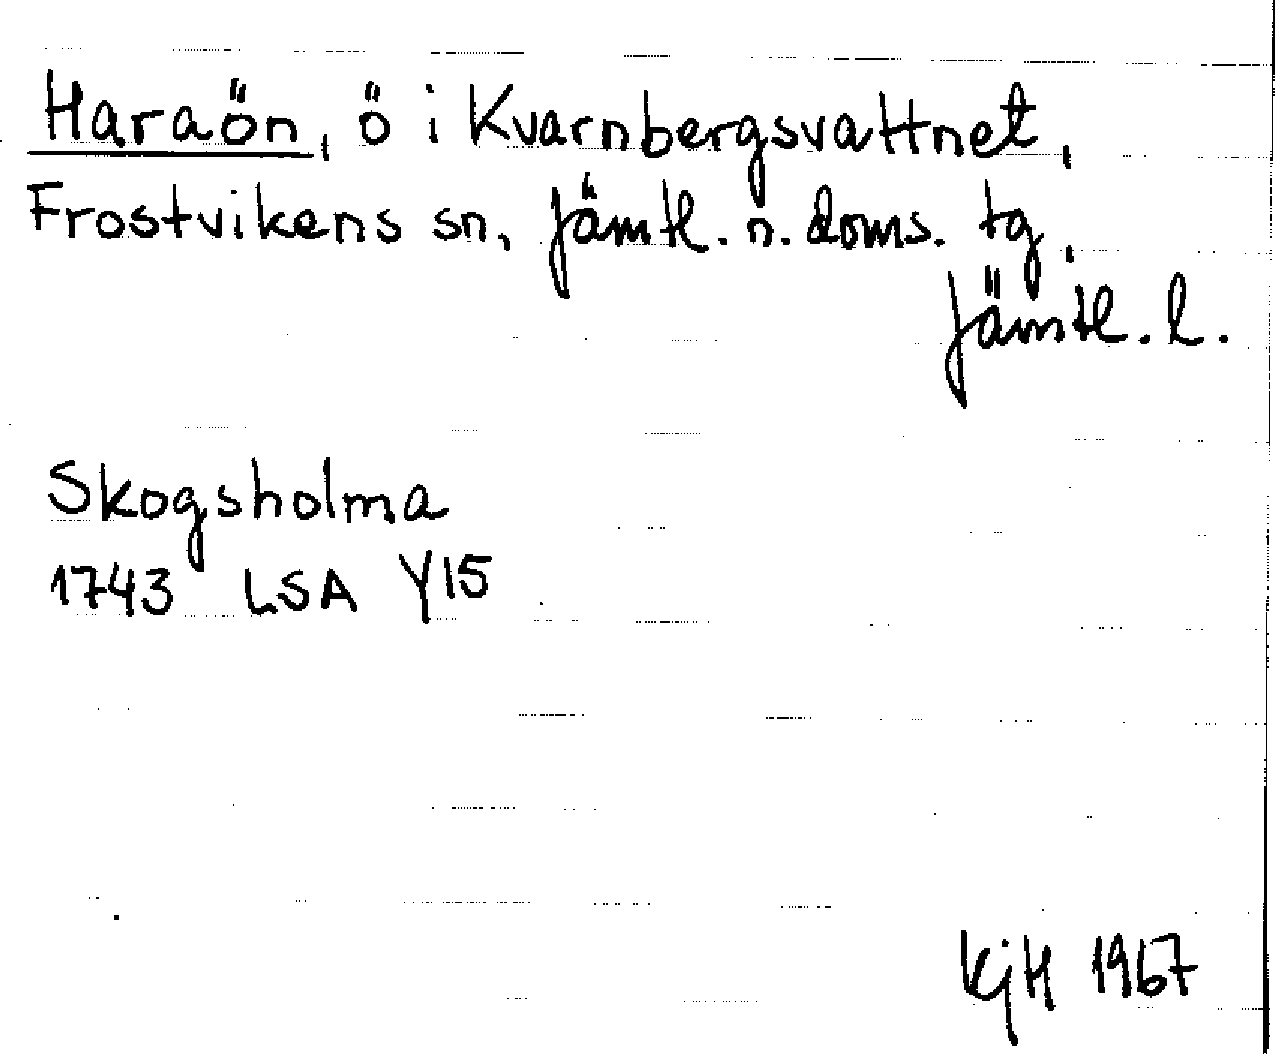 Haraön, ö i Kvarnbergsvattnet,
Frostvikens sn, Jämtl. n. doms. tg,
Jämtl. l.
Skogsholma
1743 LSA Y15
KjH 1967